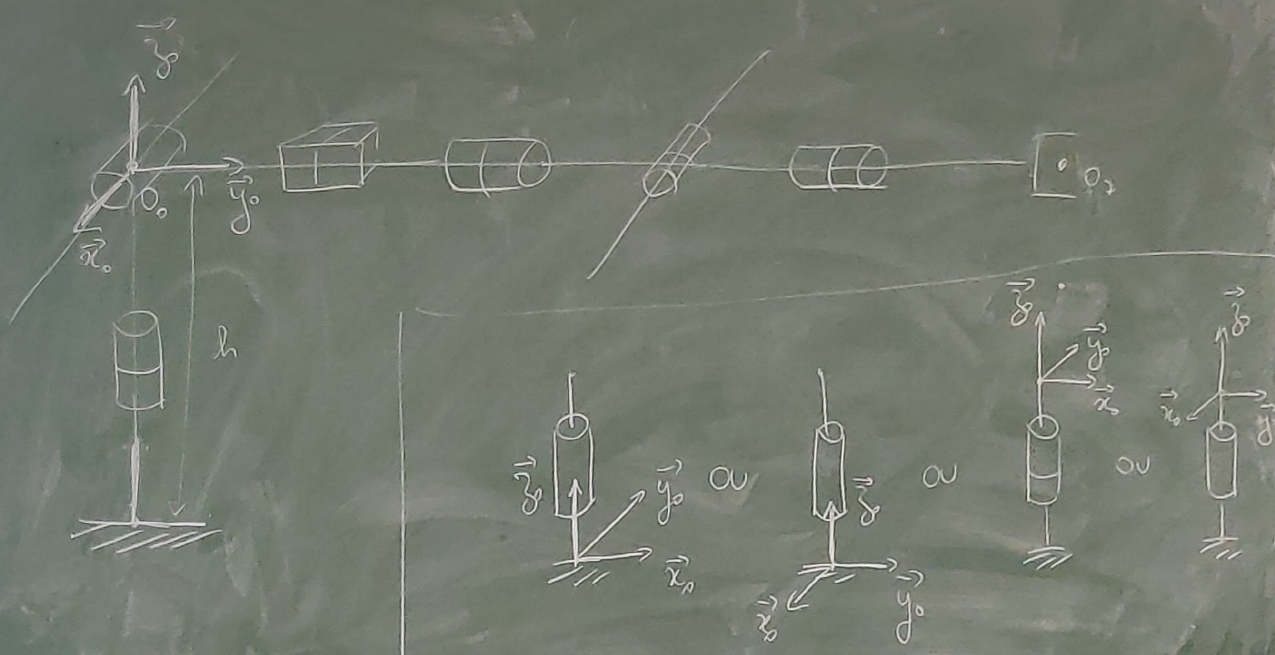 z₀
O₀
y₀
x₀
h
O₇
z₀ y₀ x₀
ou
z₀ x₀ y₀
ou
z₀ y₀ x₀
ou
z₀ x₀ y